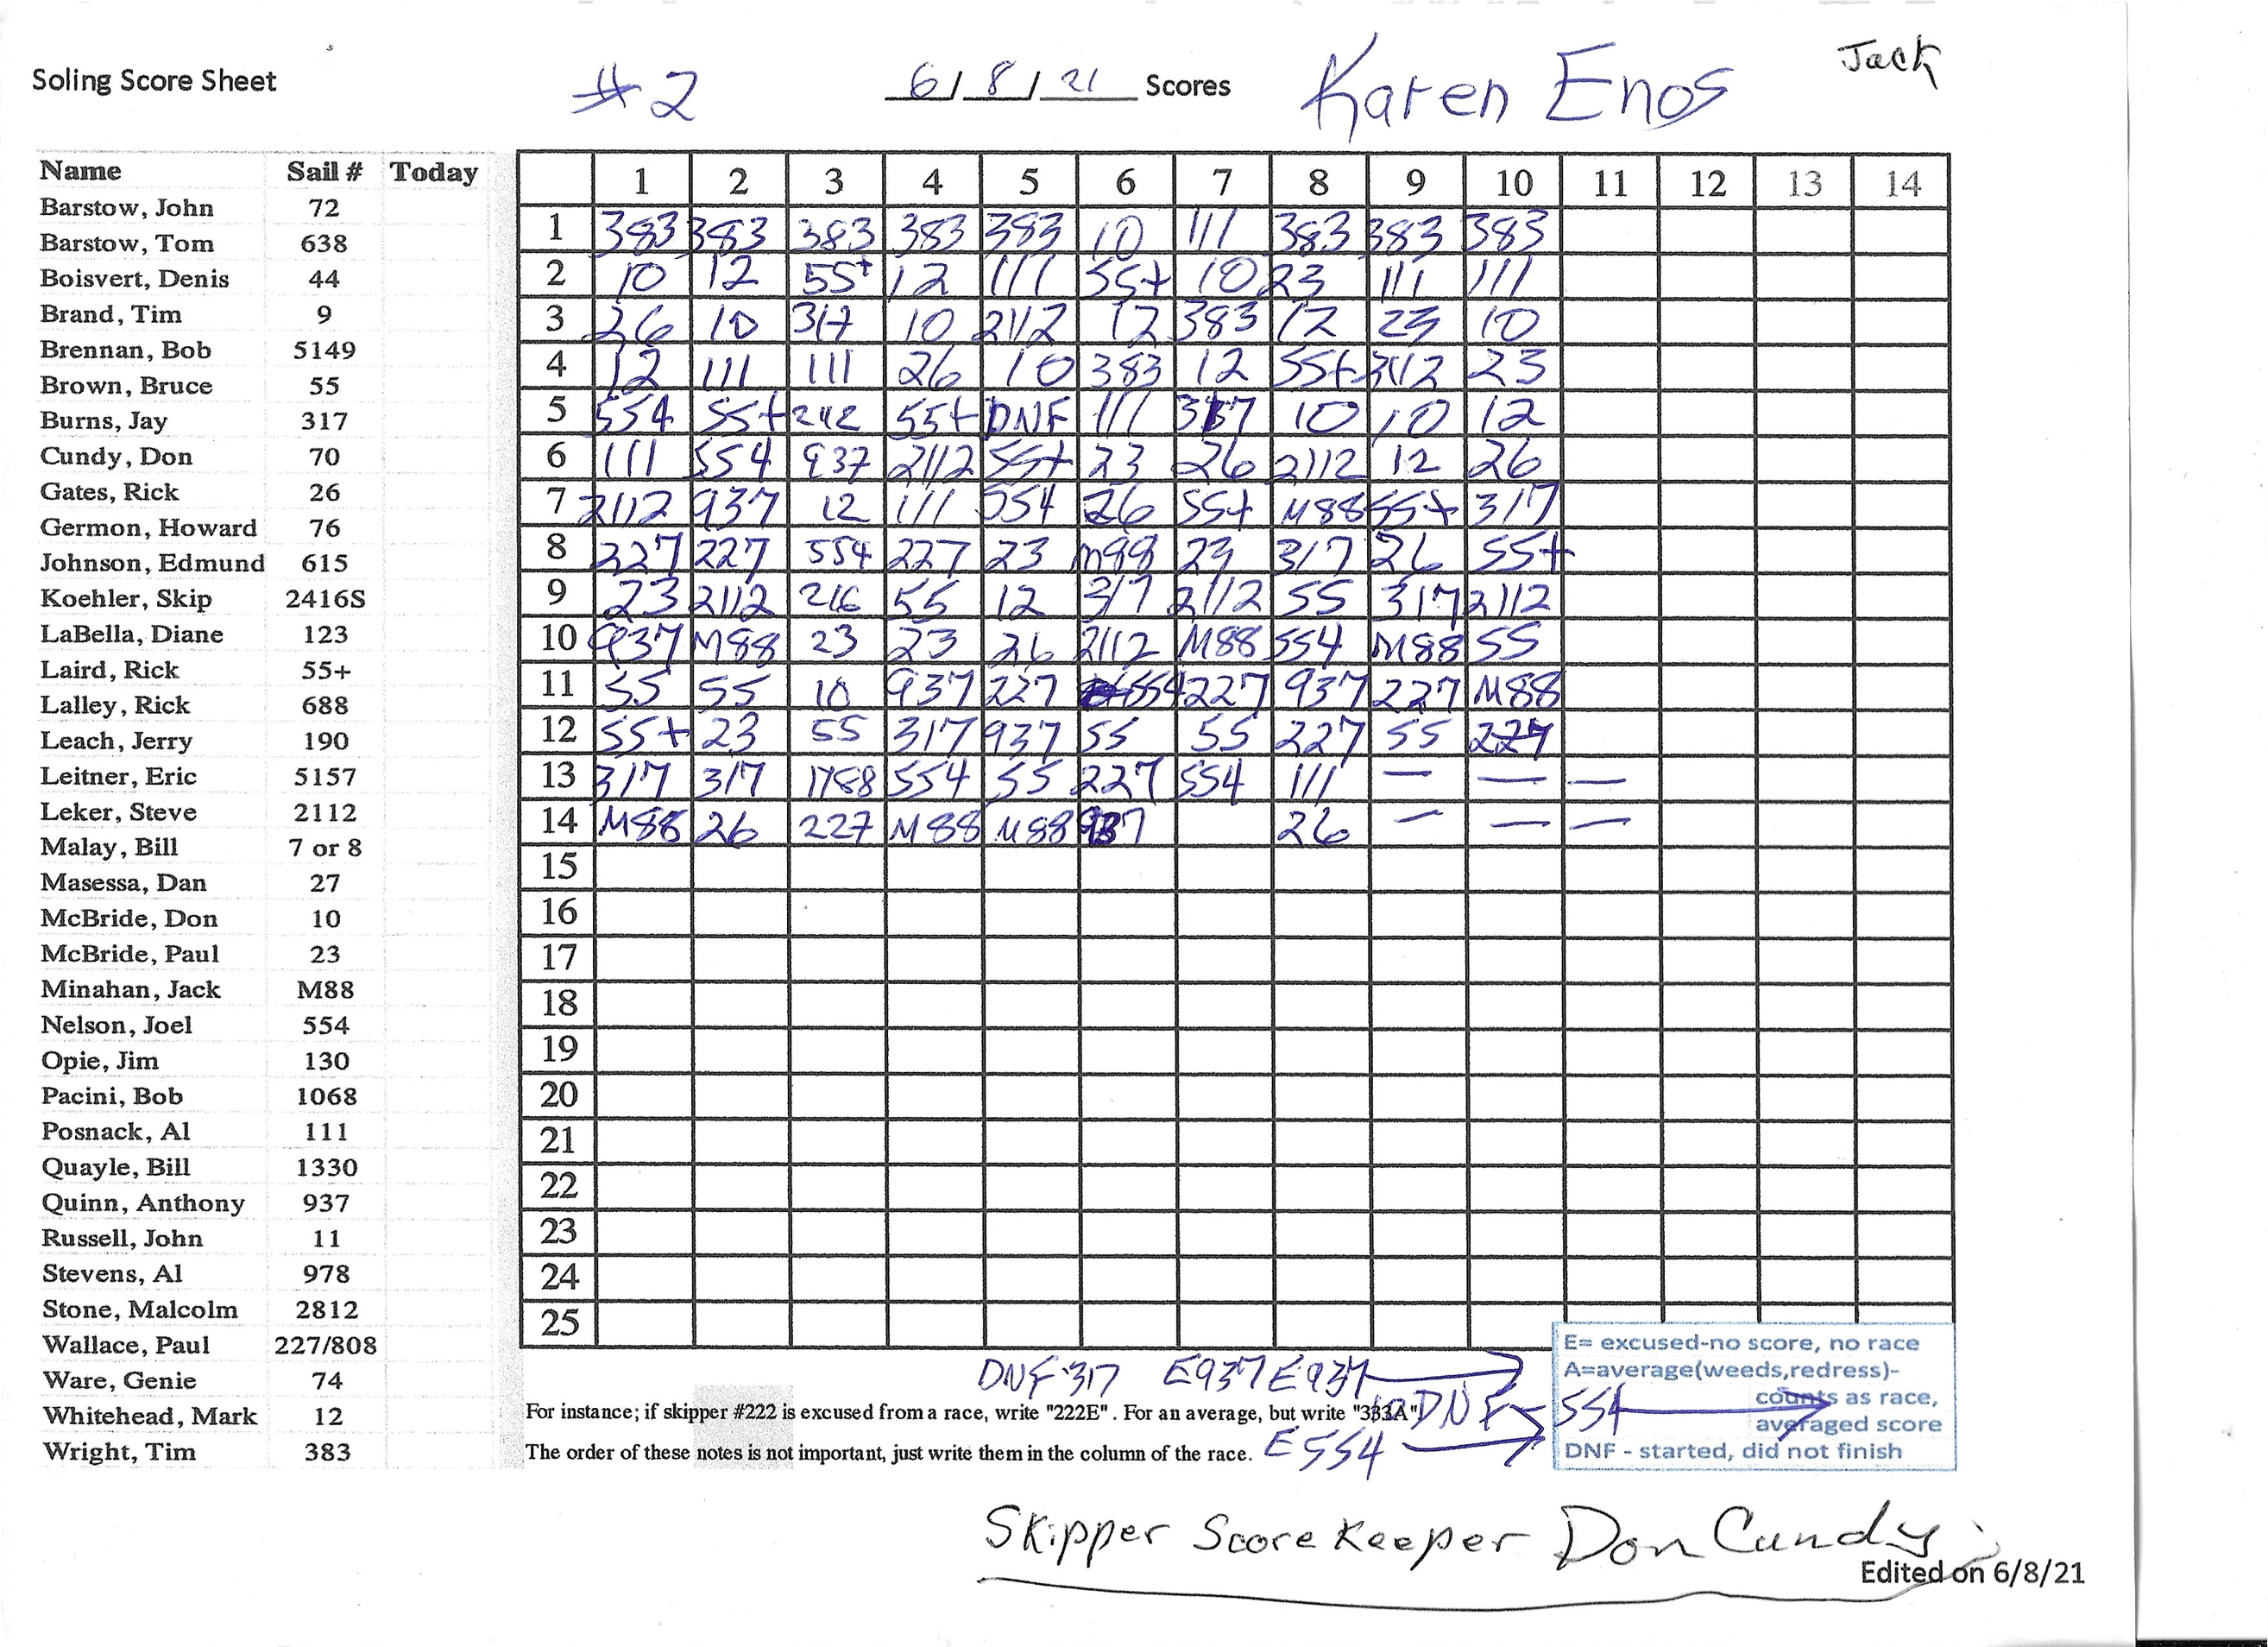 Jack
Soling Score Sheet #2 6/8/21 Scores Karen Enos
Name Sail # Today
Barstow, John 72
Barstow, Tom 638
Boisvert, Denis 44
Brand, Tim 9
Brennan, Bob 5149
Brown, Bruce 55
Burns, Jay 317
Cundy, Don 70
Gates, Rick 26
Germon, Howard 76
Johnson, Edmund 615
Koehler, Skip 2416S
LaBella, Diane 123
Laird, Rick 55+
Lalley, Rick 688
Leach, Jerry 190
Leitner, Eric 5157
Leker, Steve 2112
Malay, Bill 7 or 8
Masessa, Dan 27
McBride, Don 10
McBride, Paul 23
Minahan, Jack M88
Nelson, Joel 554
Opie, Jim 130
Pacini, Bob 1068
Posnack, Al 111
Quayle, Bill 1330
Quinn, Anthony 937
Russell, John 11
Stevens, Al 978
Stone, Malcolm 2812
Wallace, Paul 227/808
Ware, Genie 74
Whitehead, Mark 12
Wright, Tim 383
1 2 3 4 5 6 7 8 9 10 11 12 13 14
1 383 383 383 383 383 10 111 383 383 383
2 10 12 55+ 12 111 55+ 10 23 111 111
3 26 10 317 10 2112 12 383 12 23 10
4 12 111 111 26 10 383 12 55+ 2112 23
5 554 55+ 55+ DNF 111 317 10 10 12
6 111 554 937 2112 55+ 23 26 2112 12 26
7 2112 937 12 111 554 26 55+ M88 55+ 317
8 227 227 554 227 23 23 317 26 55+
9 23 2112 55 12 317 2112 55 317 2112
10 937 M88 23 23 26 2112 M88 554 M88 55
11 55 55 10 937 227 554 227 937 227 M88
12 55+ 23 55 317 937 55 55 227 55 227
13 317 317 554 55 227 554 111 — — —
14 M88 26 227 M88 M88 937 26 — — —
15
16
17
18
19
20
21
22
23
24
25
DNF 317 E937 E937
E= excused-no score, no race
A=average(weeds,redress)-
counts as race,
averaged score
DNF - started, did not finish
For instance; if skipper #222 is excused from a race, write "222E". For an average, but write "333A". DNF 554
The order of these notes is not important, just write them in the column of the race. E554
Skipper Score Keeper Don Cundy
Edited on 6/8/21